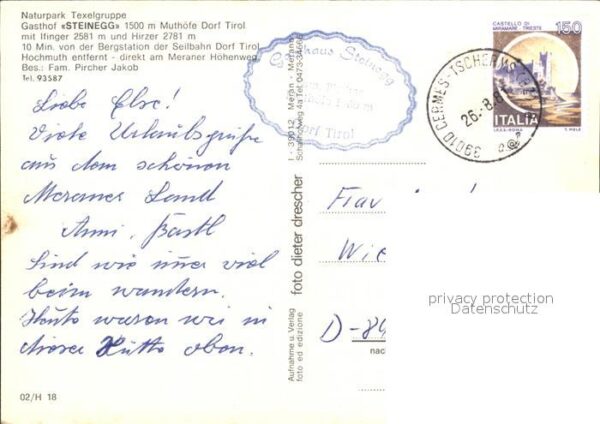 Naturpark Texelgruppe
Gasthof «STEINEGG» 1500 m Muthöfe Dorf Tirol
mit Ifinger 2581 m und Hirzer 2781 m
10 Min. von der Bergstation der Seilbahn Dorf Tirol
Hochmuth entfernt - direkt am Meraner Höhenweg.
Bes.: Fam. Pircher Jakob
Tel. 93587
Liebe Else!
Viele Urlaubsgrüße
aus dem schönen
Meraner Land
Anni, Bartl
Sind wie immer viel
beim wandern.
Heute waren wir in
dieser Hütte oben.
02/H 18
Aufnahme u. Verlag
foto ed edizione
foto dieter drescher
I - 39012 Meran - Merano
Gasthaus Steinegg
Dorf Tirol
CASTELLO DI
MIRAMARE - TRIESTE
150
ITALIA
I.P.Z.S. - ROMA
39010 CERMES-TSCHERMS
26.8.8
Frau
Wie
D-84
nac
privacy protection
Datenschutz